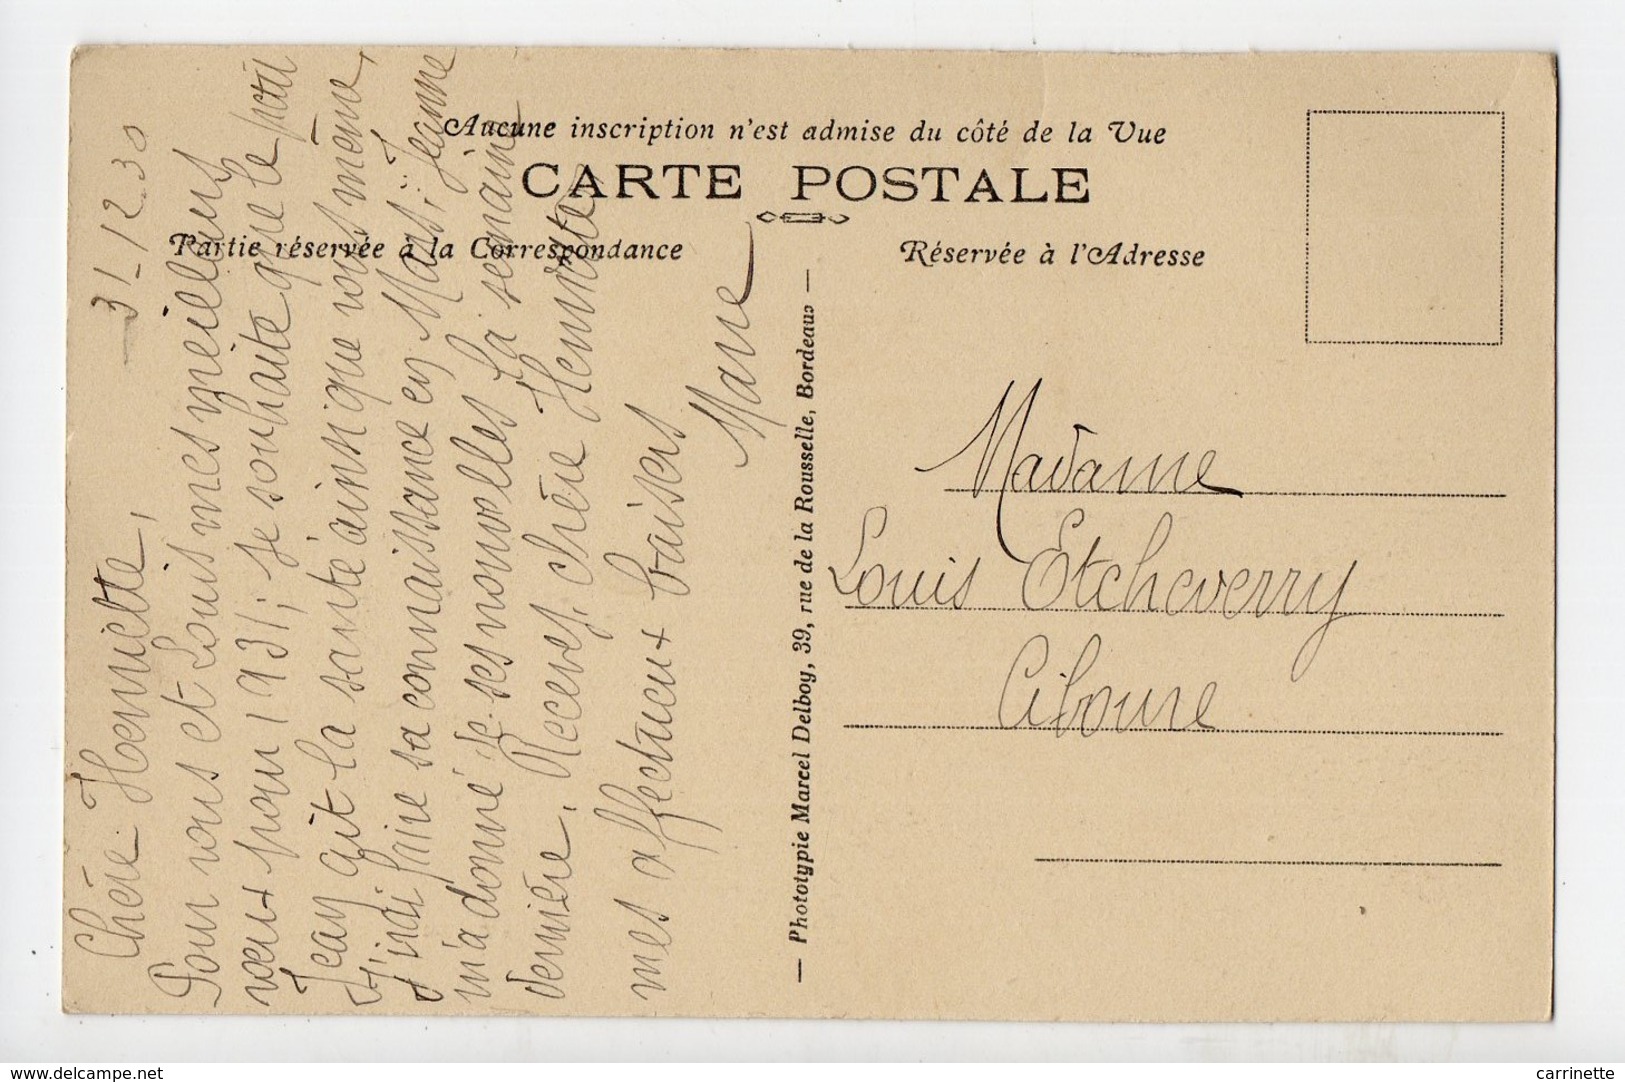 Aucune inscription n'est admise du côté de la Vue
CARTE POSTALE
Partie réservée à la Correspondance
Réservée à l'Adresse
31-12-30
Chère Henriette,
Pour vous et Louis mes meilleurs
vœux pour 1931; je souhaite que le petit
Jean ait la santé ainsi que vous même,
J'irai faire sa connaissance en Mars; Jeanne
m'a donné de ses nouvelles la semaine
dernière. Recevez, chère Henriette,
mes affectueux baisers
Marie
— Phototypie Marcel Delboy, 39, rue de la Rousselle, Bordeaux —
Madame
Louis Etcheverry
Ciboure
www.delcampe.net
carrinette